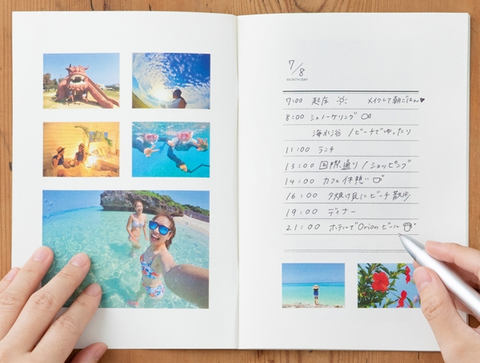 7/8
MONTH/DAY
7:00 起床 メイクして朝ごはん♥
8:00 シュノーケリング
海水浴 / ビーチでゆったり
11:00 ランチ
13:00 国際通り / ショッピング
14:00 カフェ休憩
16:00 夕焼け見にビーチ散歩
19:00 ディナー
21:00 ホテルでOrionビール